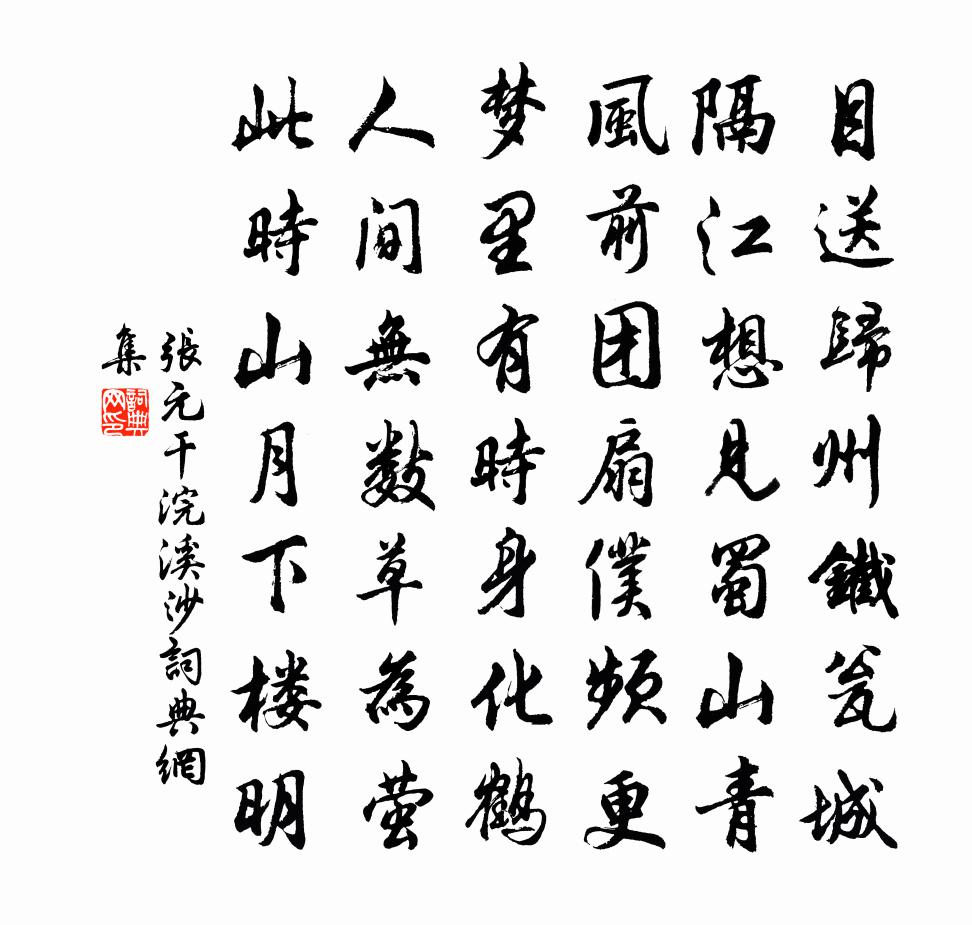 目送歸州鐵瓮城
隔江想見蜀山青
風前团扇僕頻更
梦里有時身化鶴
人间無数草為萤
此時山月下楼明
張元干浣溪沙詞典網
集
詞典
网印